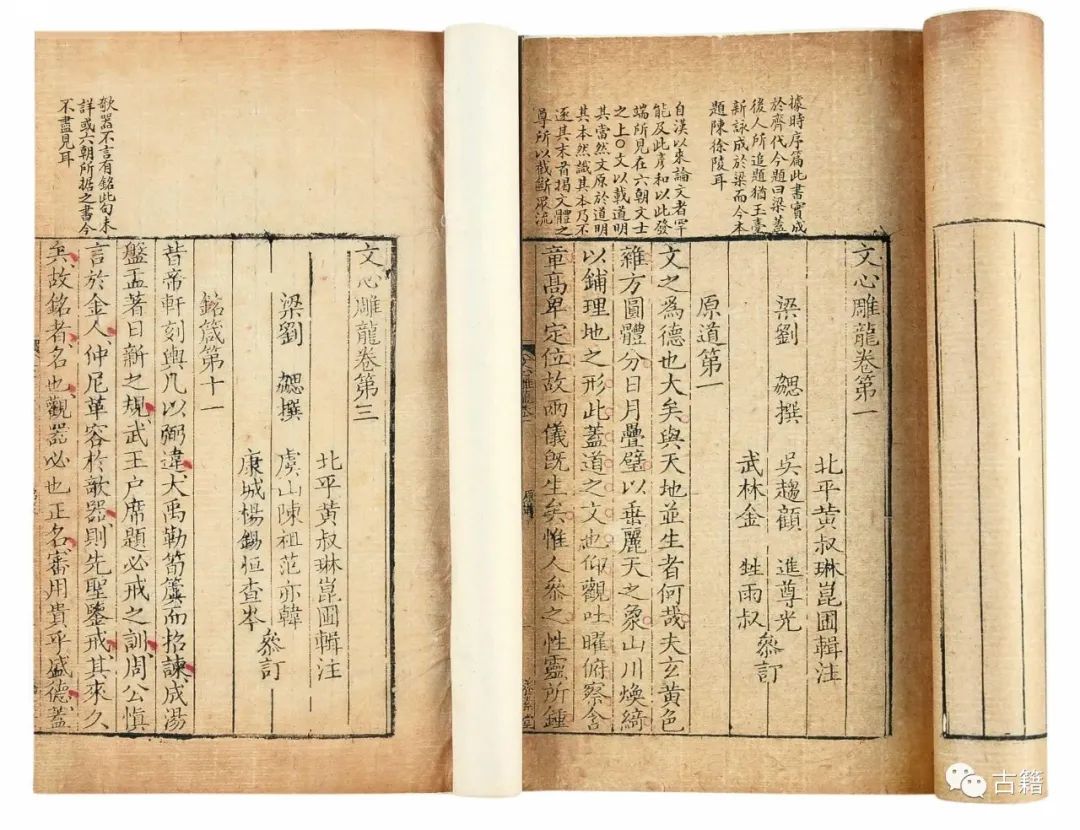 據時序篇此書實成
於齊代今題曰梁蓋
後人所追題猶玉臺
新詠成於梁而今本
題陳徐陵耳
自漢以來論文者罕
能及此彥和以此發
端所見在六朝文士
之上○文以載道明
其當然文原於道明
其本然識其本乃不
逐其末首揭文體之
尊所以截斷眾流
文心雕龍卷第一
北平黃叔琳崑圃輯注
梁劉 勰撰 吳趨顧 進尊光
武林金 甡雨叔
叅訂
原道第一
文之爲德也大矣與天地並生者何哉夫玄黃色
雜方圓體分日月疊璧以垂麗天之象山川煥綺
以鋪理地之形此蓋道之文也仰觀吐曜俯察含
章高卑定位故兩儀既生矣惟人叅之性靈所鍾
欹器不言有銘此句未
詳或六朝所據之書今
不盡見耳
文心雕龍卷第三
北平黃叔琳崑圃輯注
梁劉 勰撰 虞山陳祖范亦韓
康城楊錫恒查岑
叅訂
銘箴第十一
昔帝軒刻輿几以弼違大禹勒筍簴而招諫成湯
盤盂著日新之規武王户席題必戒之訓周公慎
言於金人仲尼革容於欹器則先聖鑒戒其來久
矣故銘者名也觀器必也正名審用貴乎盛德蓋
古籍